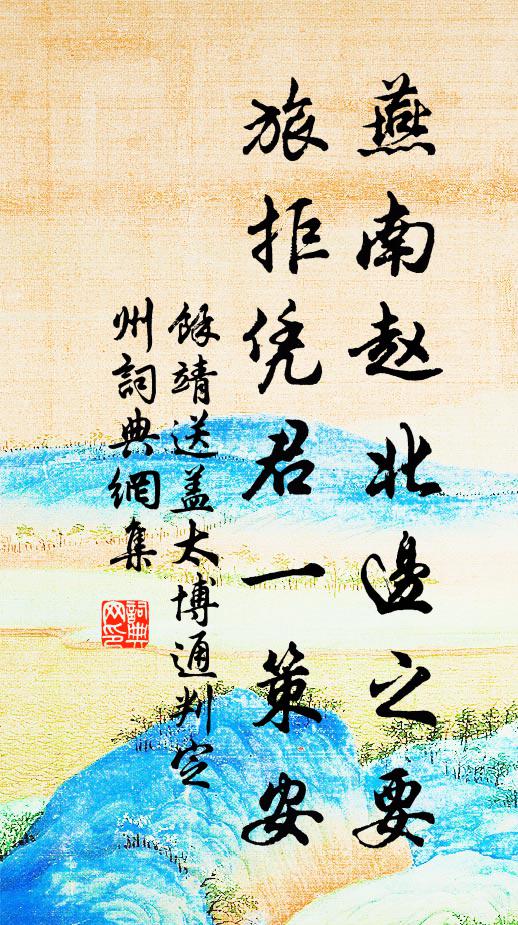 燕南赵北邊之要
旅拒凭君一策安
餘靖送盖大博通判定
州詞典網集
詞典网印